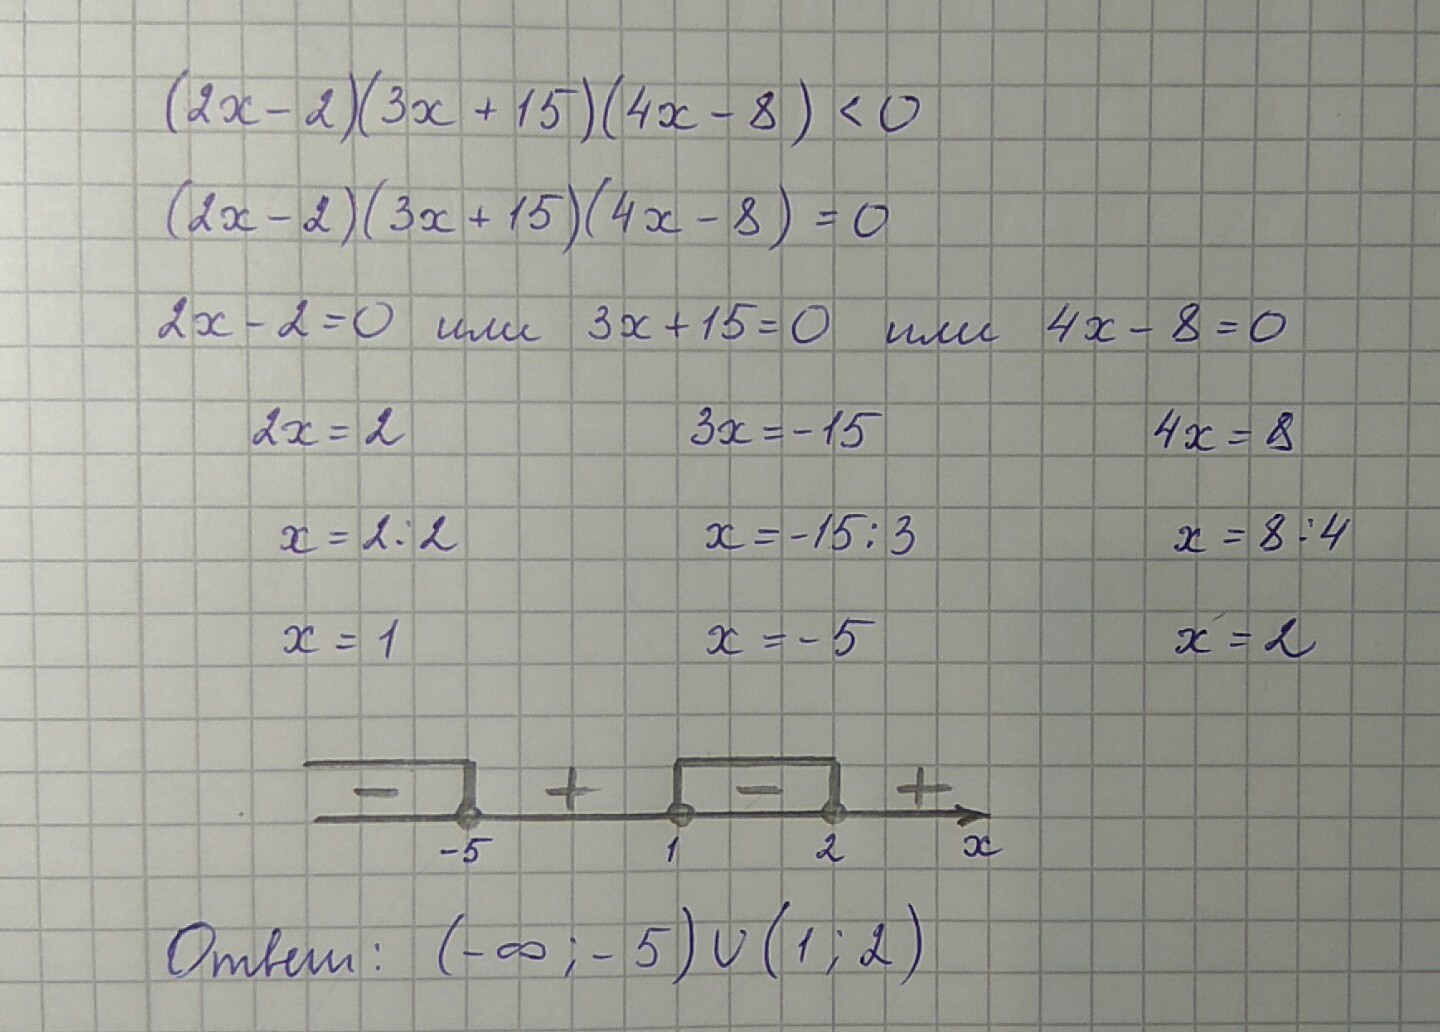 (2x-2)(3x+15)(4x-8)<0
(2x-2)(3x+15)(4x-8)=0
2x-2=0 или 3x+15=0 или 4x-8=0
2x=2 3x=-15 4x=8
x=2:2 x=-15:3 x=8:4
x=1 x=-5 x=2
- + - +
-5 1 2 x
Ответ: (-∞;-5)∪(1;2)